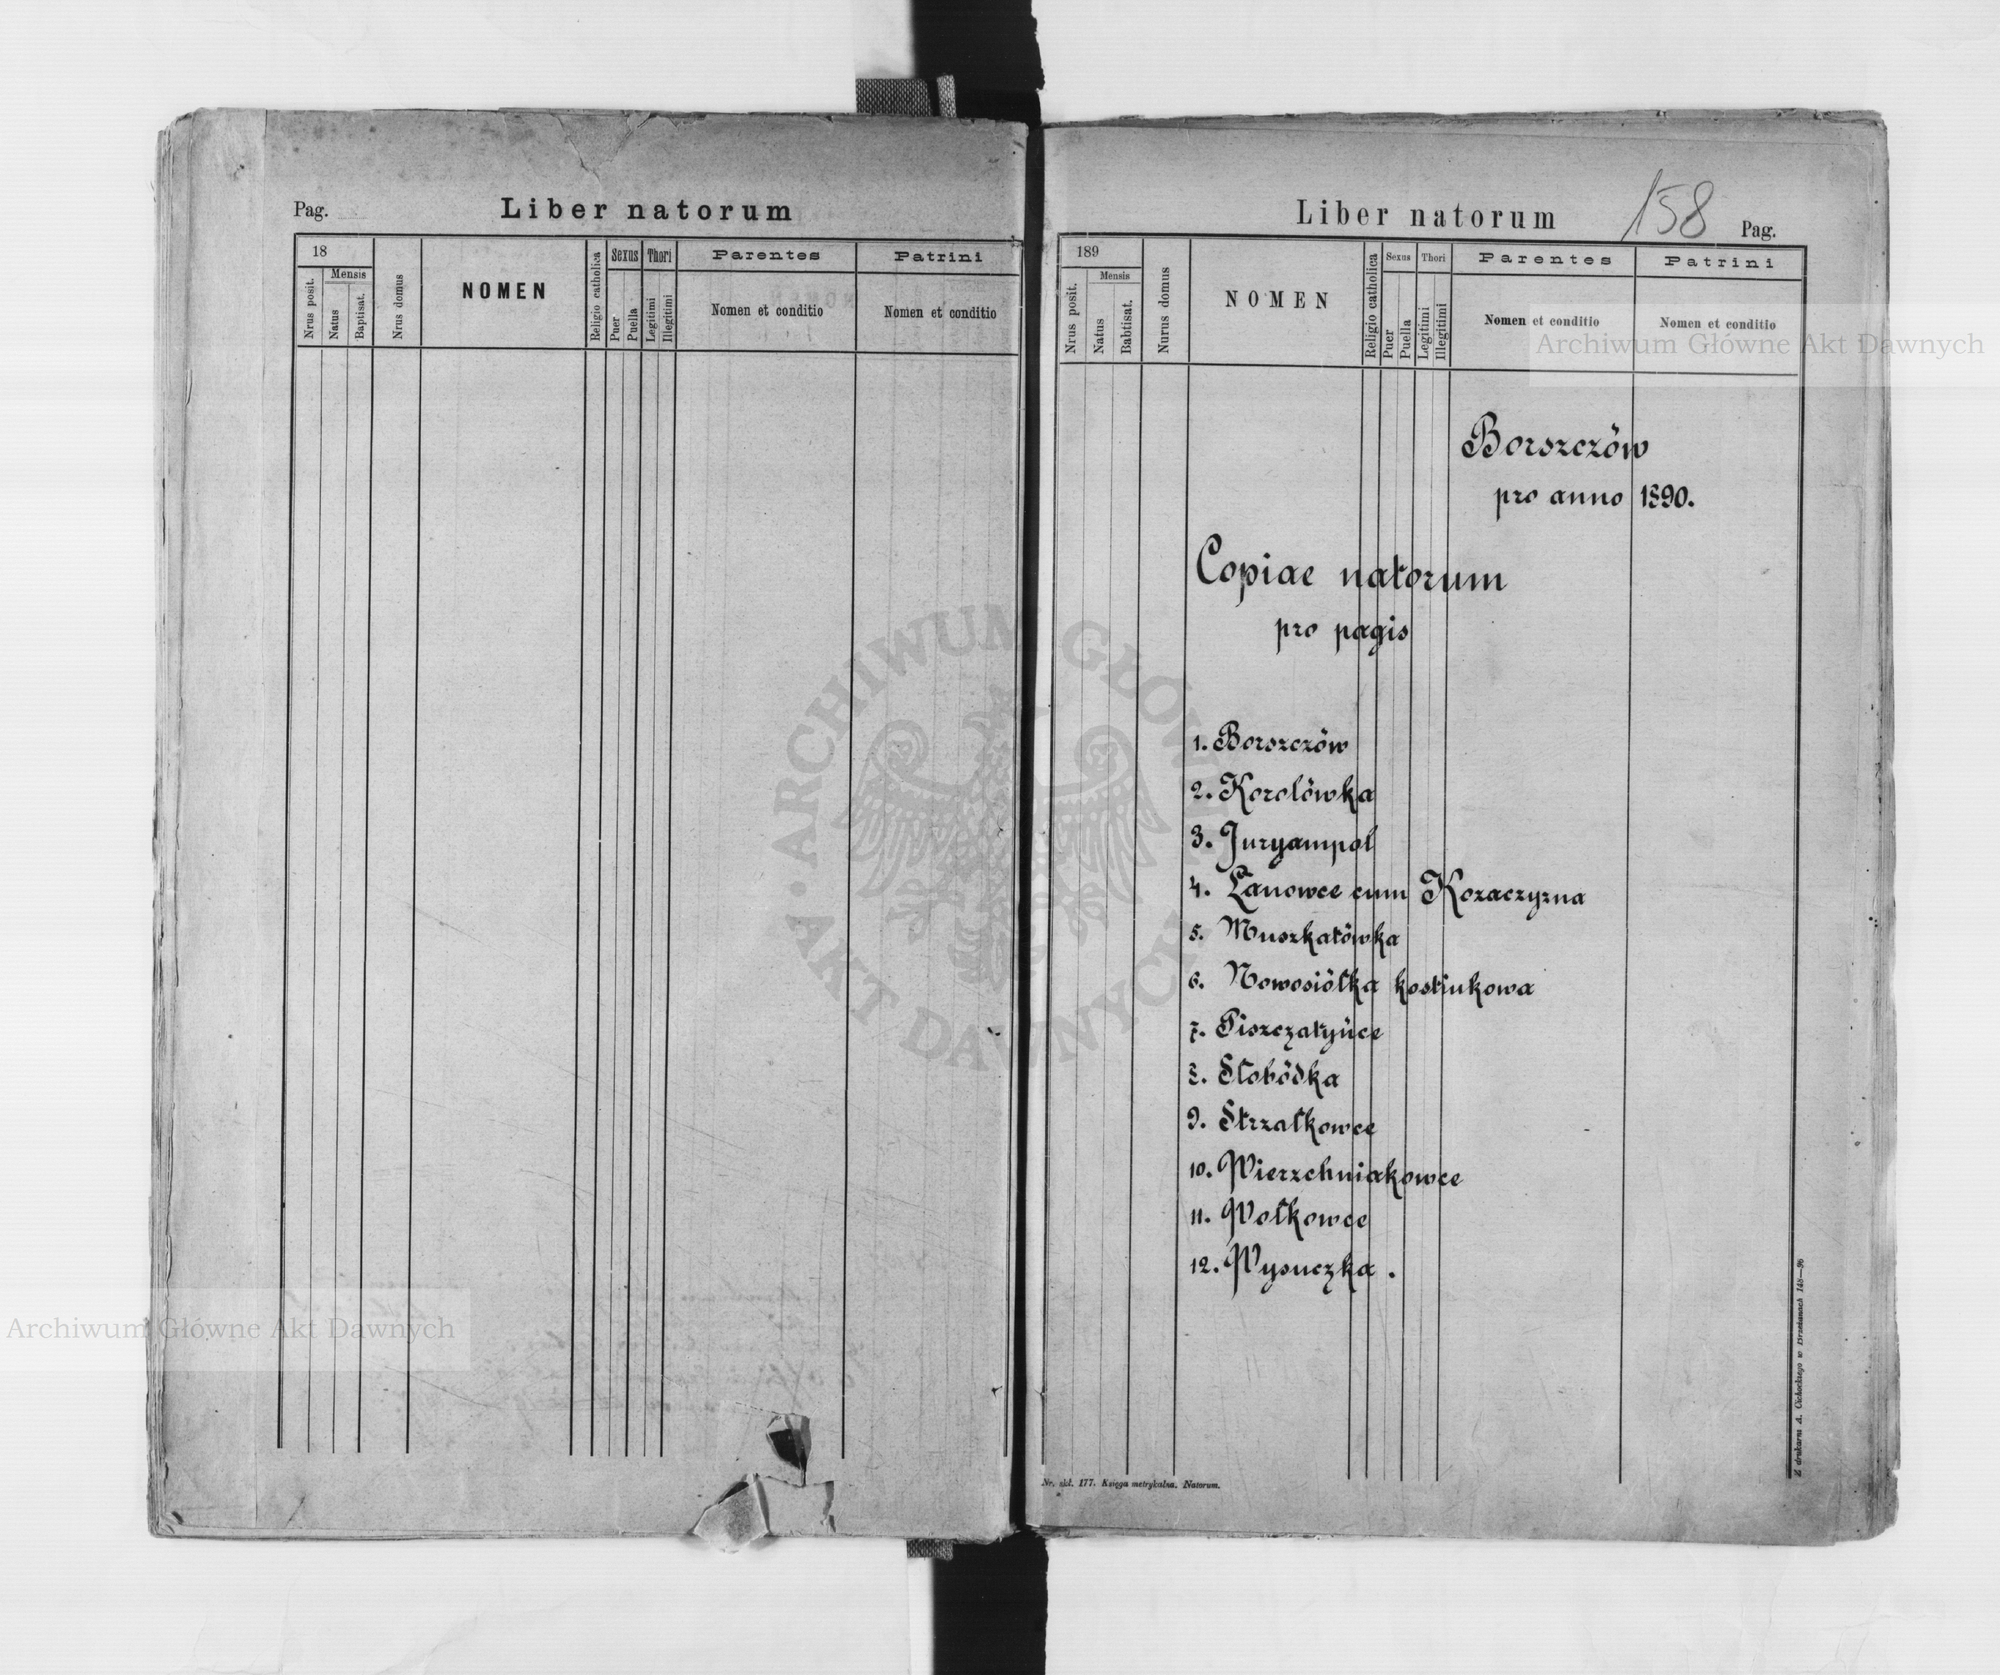 Pag.
Liber natorum
18
Mensis
Nrus posit.
Natus
Baptisat.
Nrus domus
NOMEN
Religio catholica
Sexus
Puer
Puella
Thori
Legitimi
Illegitimi
Parentes
Nomen et conditio
Patrini
Nomen et conditio
Liber natorum
158
Pag.
189
Mensis
Nrus posit.
Natus
Babtisat.
Nurus domus
NOMEN
Religio catholica
Sexus
Puer
Puella
Thori
Legitimi
Illegitimi
Parentes
Nomen et conditio
Patrini
Nomen et conditio
Archiwum Główne Akt Dawnych
Borszczów
pro anno 1890.
Copiae natorum
pro pagis
1. Borszczów
2. Korolówka
3. Juryampol
4. Łanowce cum Kozaczyzna
5. Muszkatówka
6. Nowosiółka kostiukowa
7. Piszczatyńce
8. Słobódka
9. Strzałkowce
10. Wierzchniakowce
11. Wołkowce
12. Wysuczka.
ARCHIWUM GŁÓWNE AKT DAWNYCH
Archiwum Główne Akt Dawnych
Nr. skl. 177. Księga metrykalna. Natorum.
Z drukarni A. Cichockiego w Brzeżanach 148—96